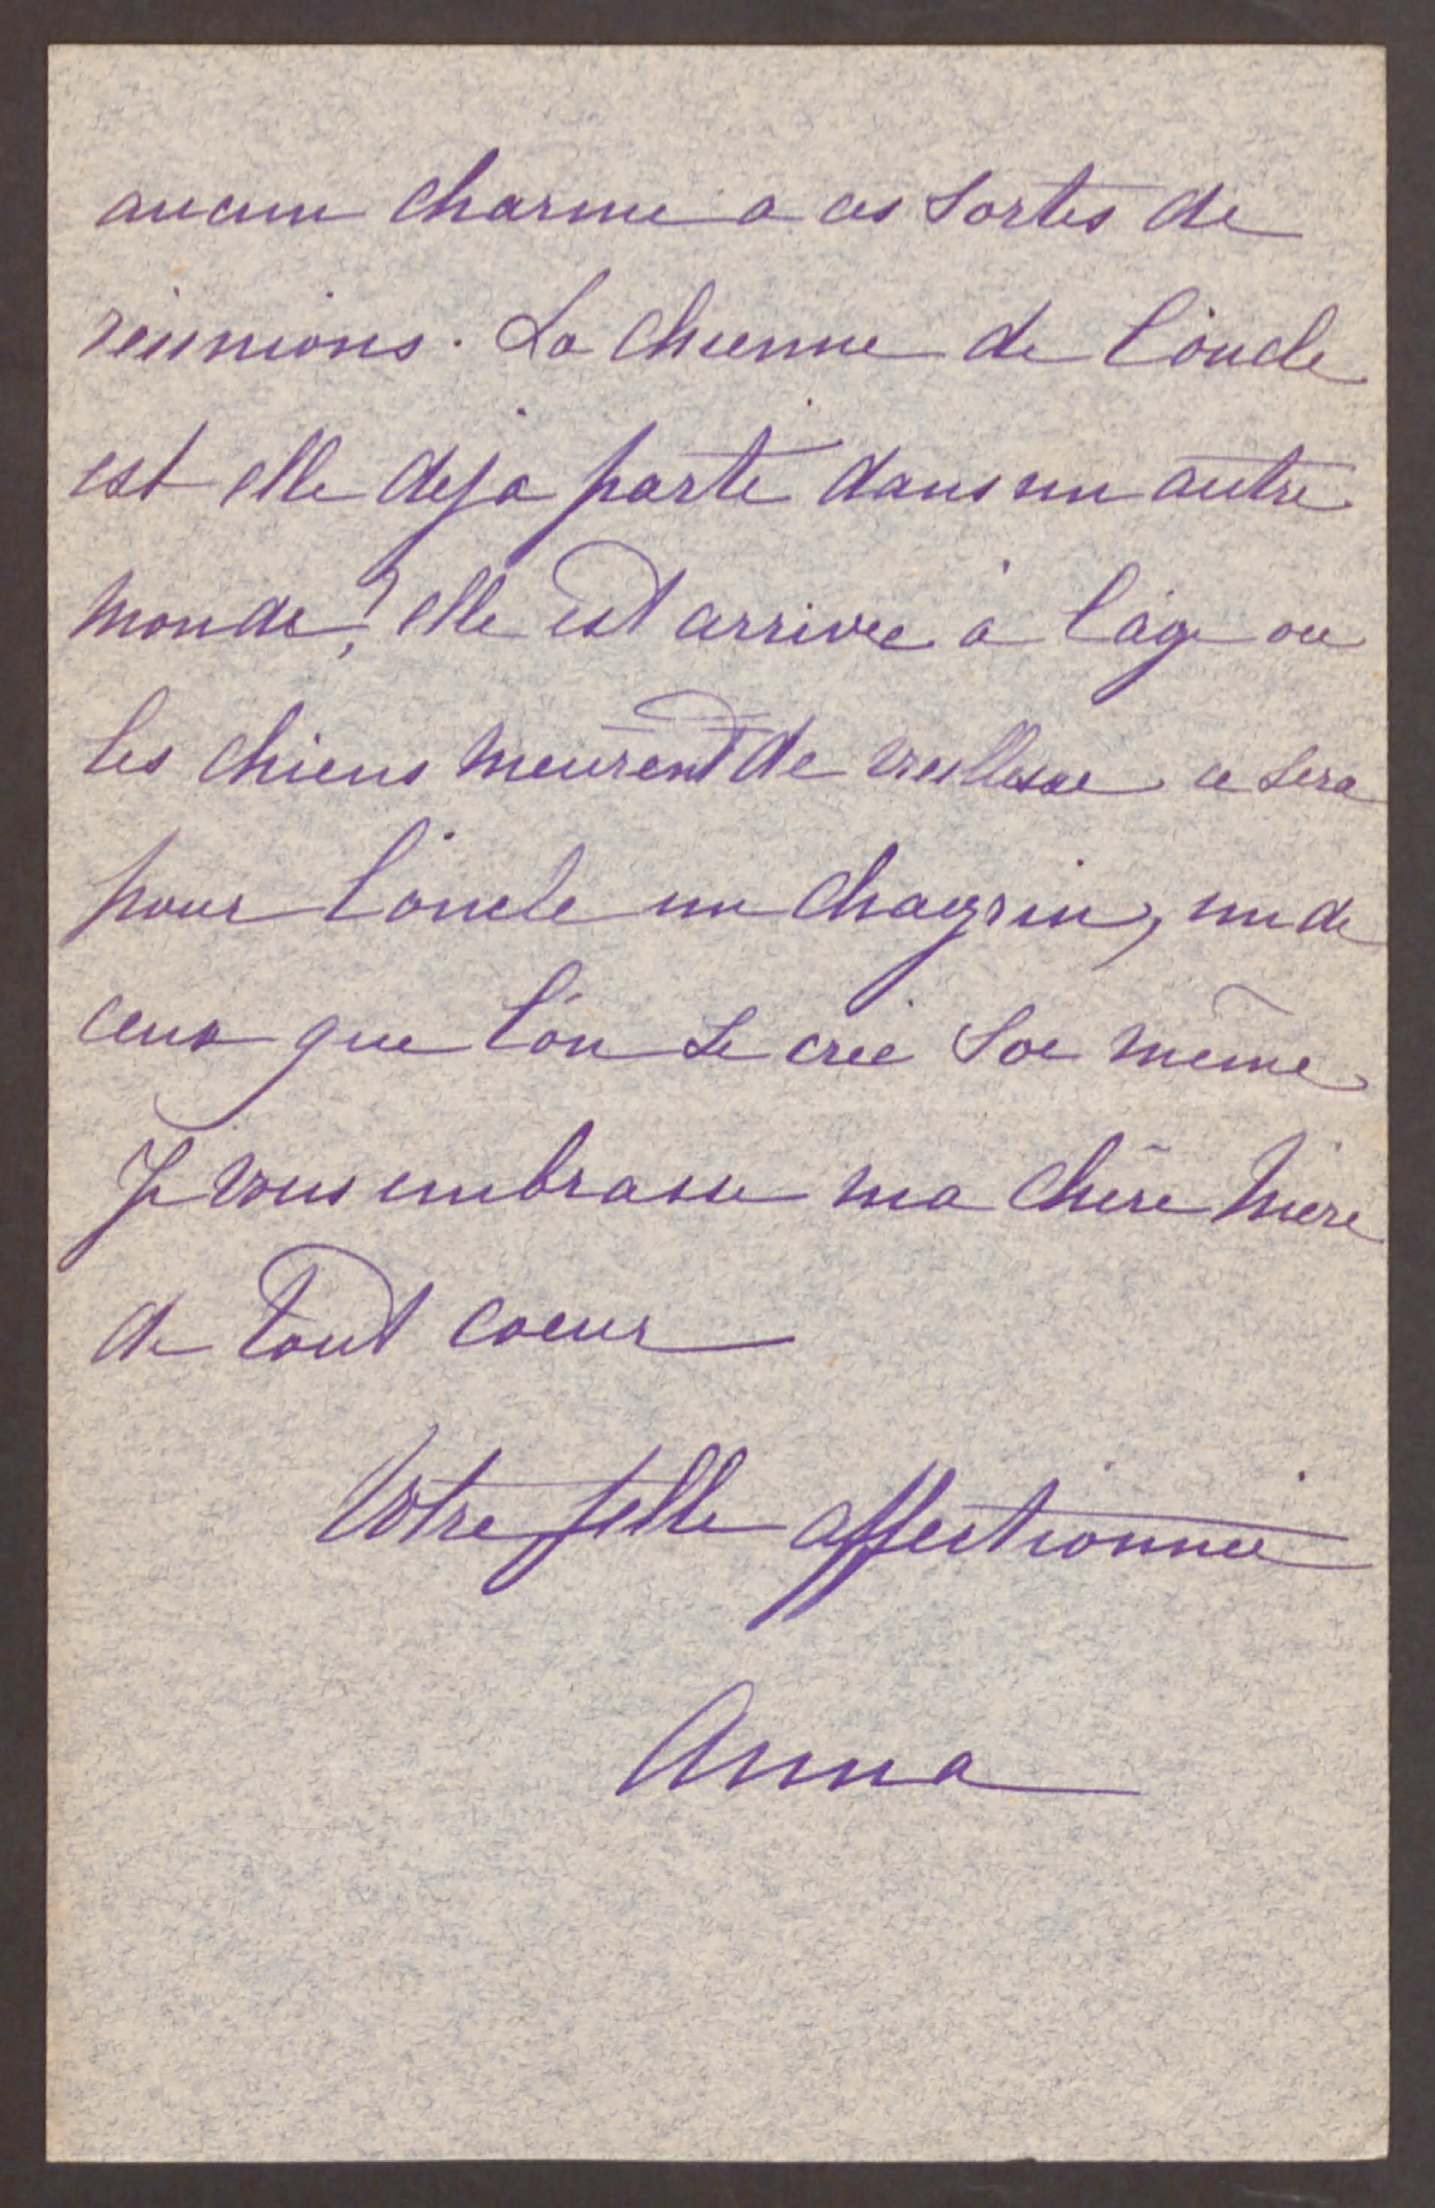 aucun charme a ces sortes de
réunions. La chienne de l'oncle
est elle deja parti dans un autre
monde, ? elle est arrivee à l'age ou
les chiens meurent de vieillesse ce sera
pour l'oncle un chagrin, un de
ceux que l'on se crée soi même
Je vous embrasse ma chère mère
de tout coeur
Votre fille affectionnée
Anna